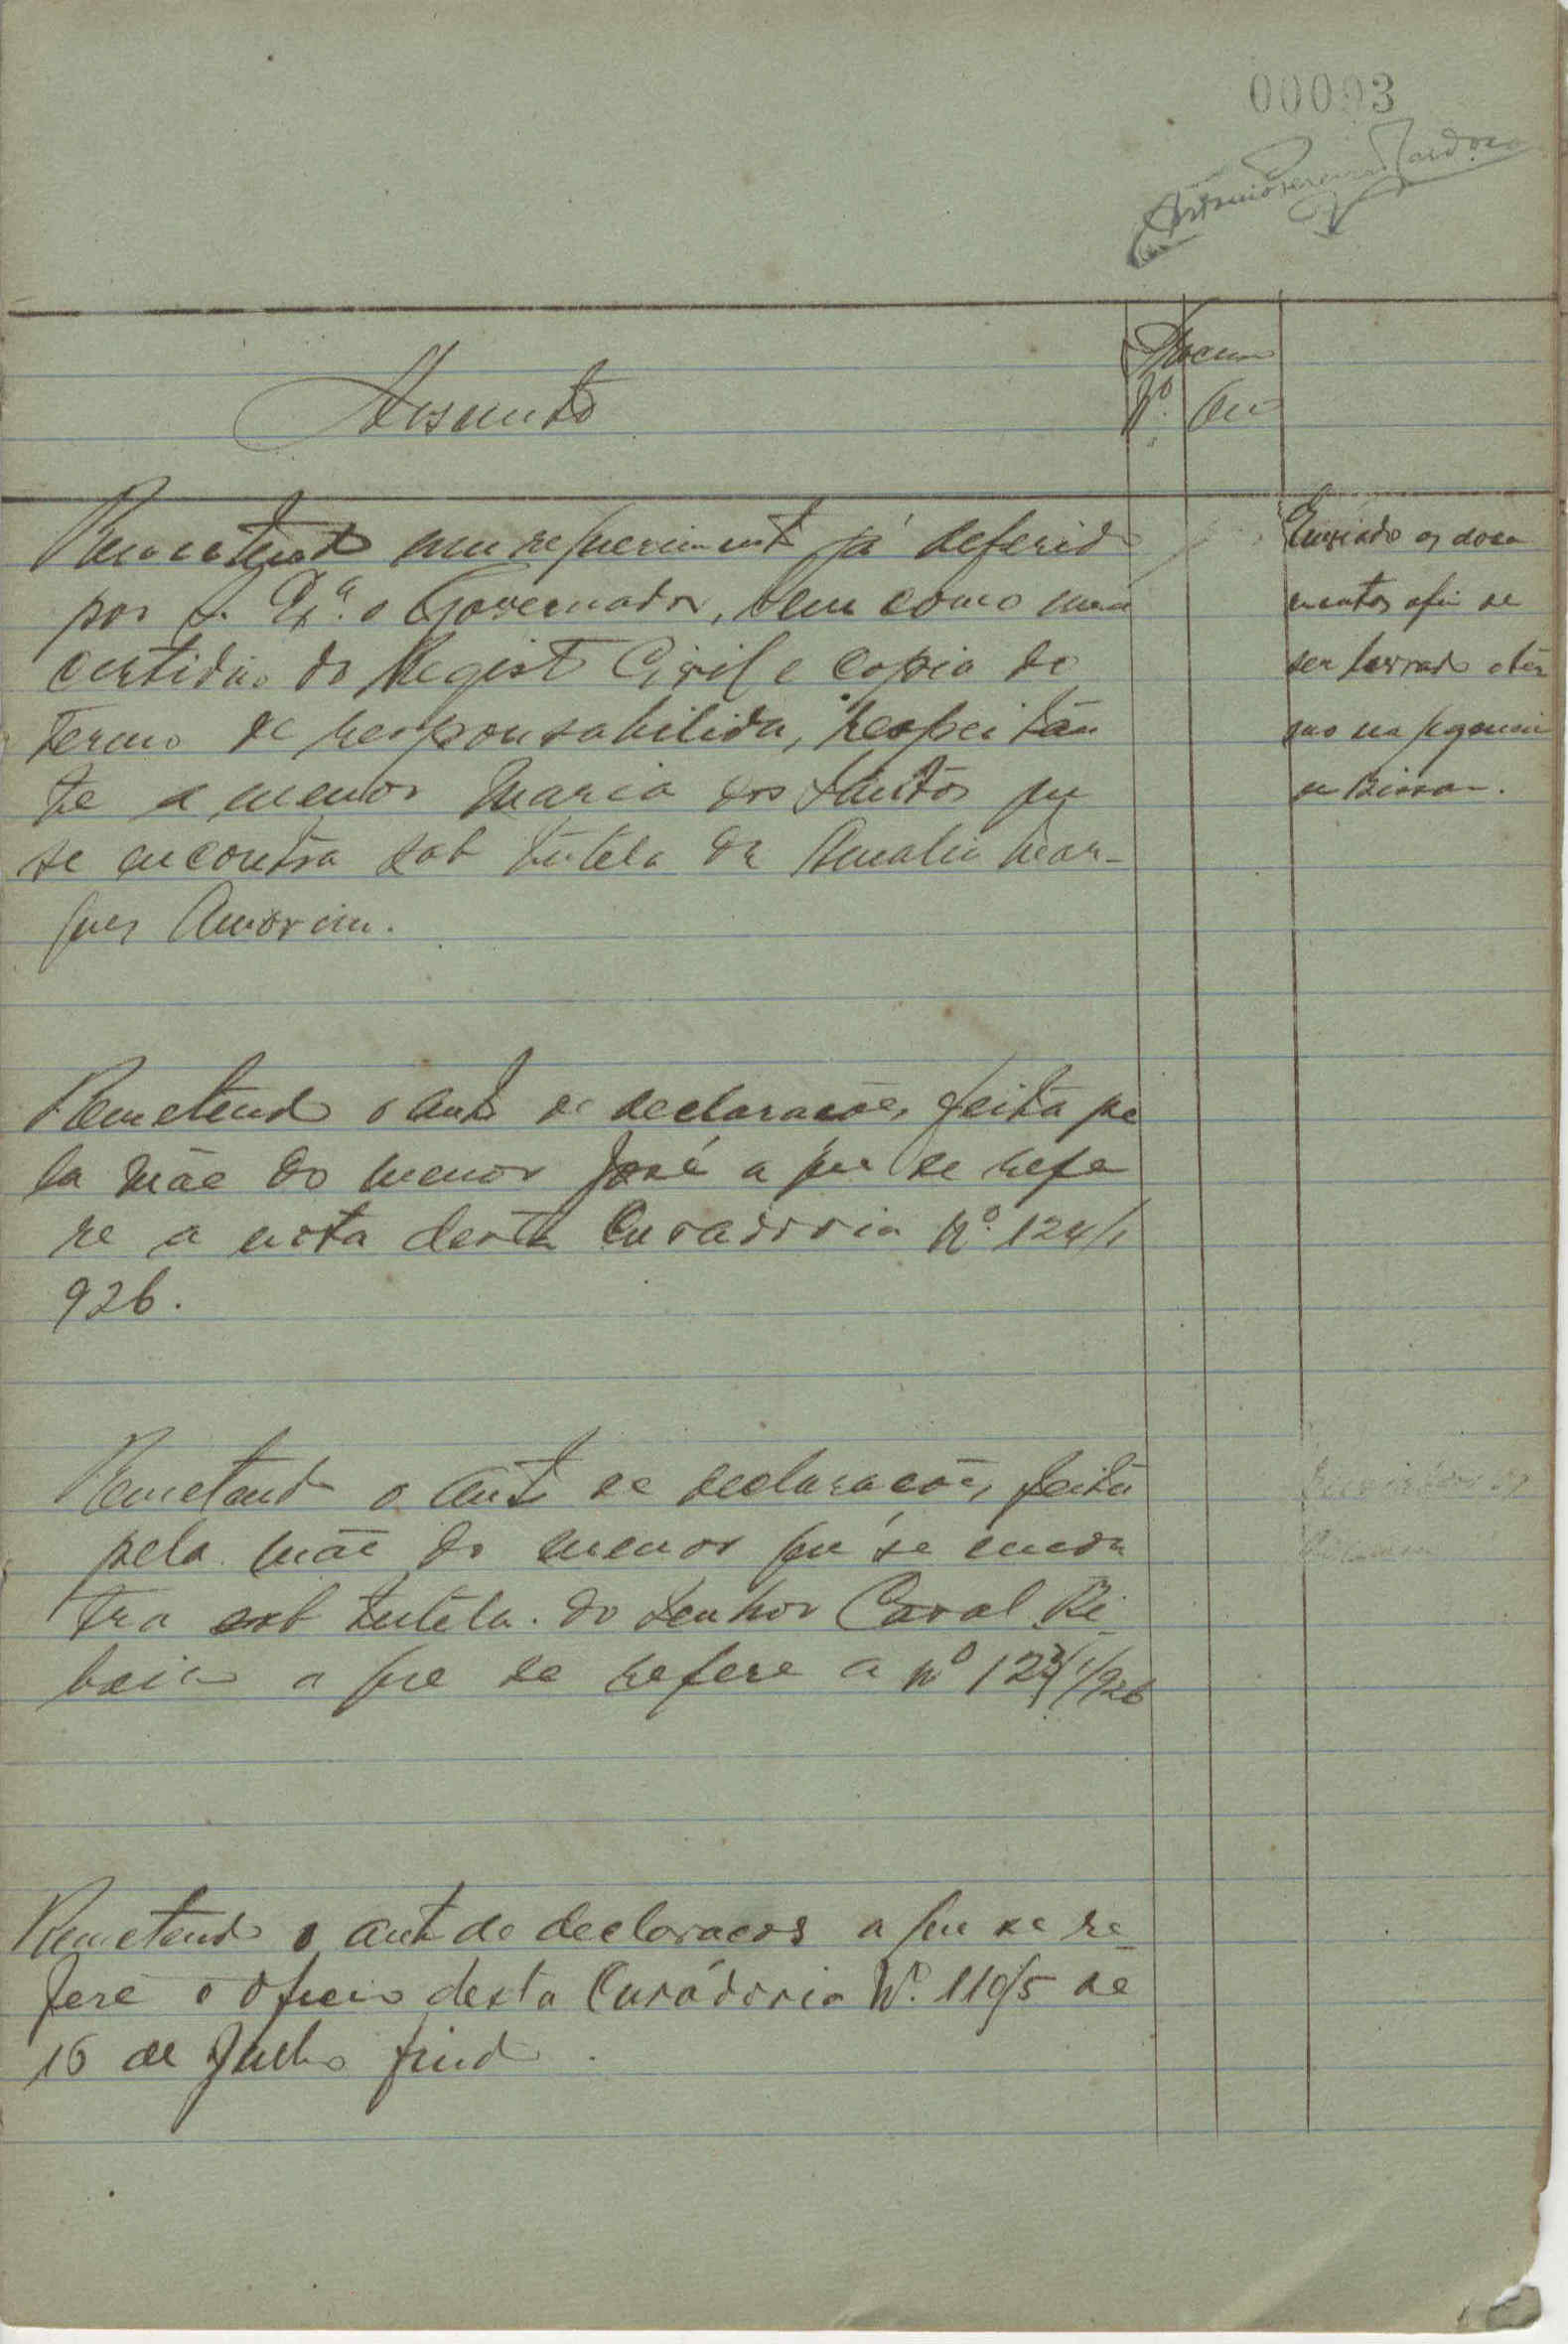 00093
Antonio Pereira Cardoso
Assunto
Docum
Nº
Remetend um requeriment já deferido
por S. Exª. o Governador, bem como uma
certidão do Regist Civil e copia do
termo de responsabilida, respeitan
te a menor Maria dos Santos que
se encontra sob tutela de Amalia Mar-
ques Amorim.
Enviado os docu
mentos afim de
ser lavrado o ter
mo na
Bissau.
Remetend o aut de declarações, feita pe
la mãe do menor José a que se refe
re a nota desta Curadoria Nº. 124/1
926.
Remetend o aut de declarações, feita
pela mãe do menor que se encon
tra sob tutela do Senhor Caval Ri
beiro a que se refere a nº 123/1/926
Remetendo o aut de declaracões a que se re
fere o oficio desta Curádoria Nº. 110/5 de
16 de Julho find